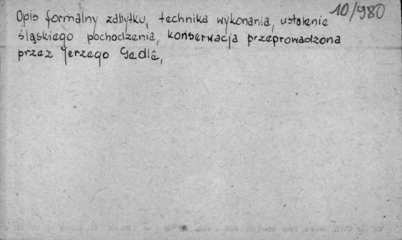 10/980
Opis formalny zabytku, technika wykonania, ustalenie
śląskiego pochodzenia, konserwacja przeprowadzona
przez Jerzego Gedla,